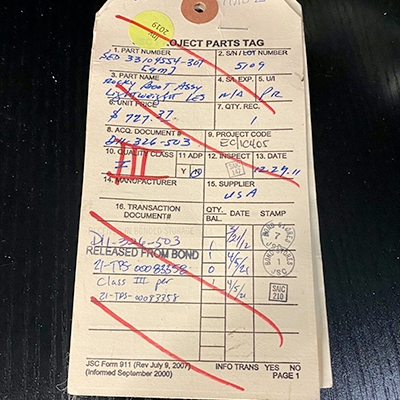 Jan
2019
PROJECT PARTS TAG
1. PART NUMBER 2. S/N / LOT NUMBER
SED 33104554-301 5109
3. PART NAME 4. S/L EXP. 5. U/I
ROCKY BOOT ASSY N/A PR
LIGHTWEIGHT LES
6. UNIT PRICE 7. QTY. REC.
$ 727.37 1
8. ACQ. DOCUMENT # 9. PROJECT CODE
D11-326-503 EC1C405
10. QUALITY CLASS 11 ADP 12. INSPECT 13. DATE
I III Y N 12-29-11
14. MANUFACTURER 15. SUPPLIER
USA
16. TRANSACTION DOCUMENT# QTY. BAL. DATE STAMP
BONDED STORAGE
D11-326-503 1 3/21/12 7 JSC
RELEASED FROM BOND
21-TPS-00083358 0 4/5/21 BOND STORES 1 JSC
Class III per 1 4/5/21 SAIC 210
21-TPS-00083358
JSC Form 911 (Rev July 9, 2007) INFO TRANS YES NO
(Informed September 2000) PAGE 1